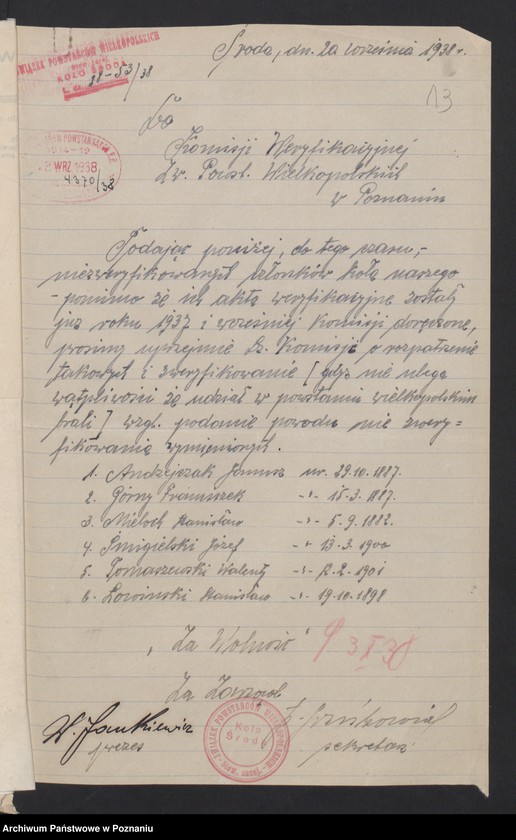 ZWIĄZEK POWSTAŃCÓW WIELKOPOLSKICH
KOŁO ŚRODA
L. dz. 88-53/38
Środa, dn. 20 września 1938 r.
13
Do
Komisji Weryfikacyjnej
Zw. Powst. Wielkopolskich
w Poznaniu
WRZ. 1938
4370/38
Podając poniżej, do tego czasu,-
niezweryfikowanych członków koła naszego
- pomimo że ich akta weryfikacyjne zostały
już roku 1937 i wcześniej Komisji doręczone,
prosimy uprzejmie Sz. Komisję o rozpatrzenie
takowych i zweryfikowanie [gdyż nie ulega
wątpliwości że udział w powstaniu wielkopolskim
brali] wzgl. podanie powodu nie zwery-
fikowania wymienionych.
1. Andrzejczak Janusz ur. 29.10.1887.
2. Górny Franciszek -"- 15.3.1887.
3. Mieloch Stanisław -"- 5.9.1882.
4. Śmigielski Józef -"- 13.3.1900
5. Tomaszewski Walenty -"- 2.2.1901
6. Stanisław -"- 19.10.1898
"Za Wolność"
Za Zarząd
W. Jankiewicz
prezes
sekretarz
ZWIĄZEK POWSTAŃCÓW WIELKOPOLSKICH
Koło
Środa
Archiwum Państwowe w Poznaniu